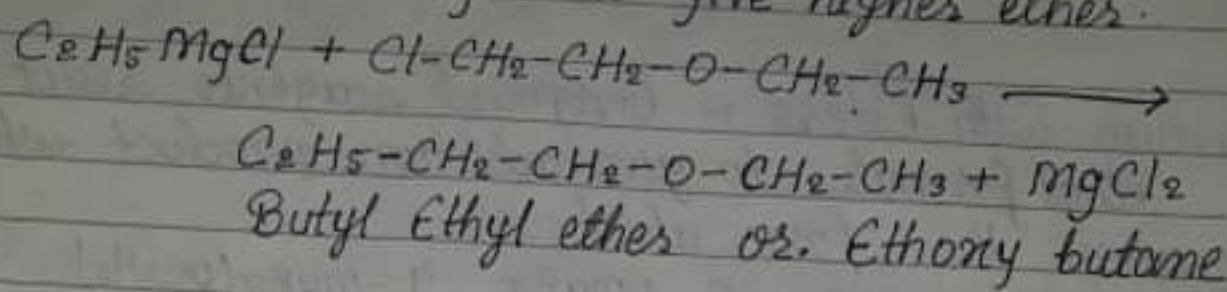 give higher ether.
C2H5MgCl + Cl-CH2-CH2-O-CH2-CH3 ⟶
C2H5-CH2-CH2-O-CH2-CH3 + MgCl2
Butyl Ethyl ether or. Ethoxy butane